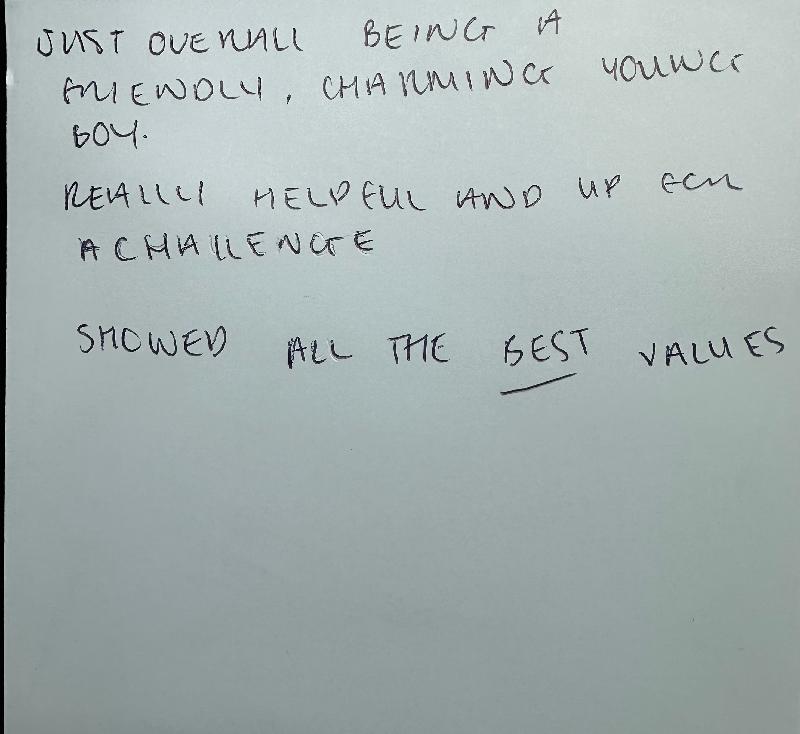 JUST OVERALL BEING A
FRIENDLY, CHARMING YOUNG
BOY.
REALLY HELPFUL AND UP FOR
A CHALLENGE
SHOWED ALL THE BEST VALUES